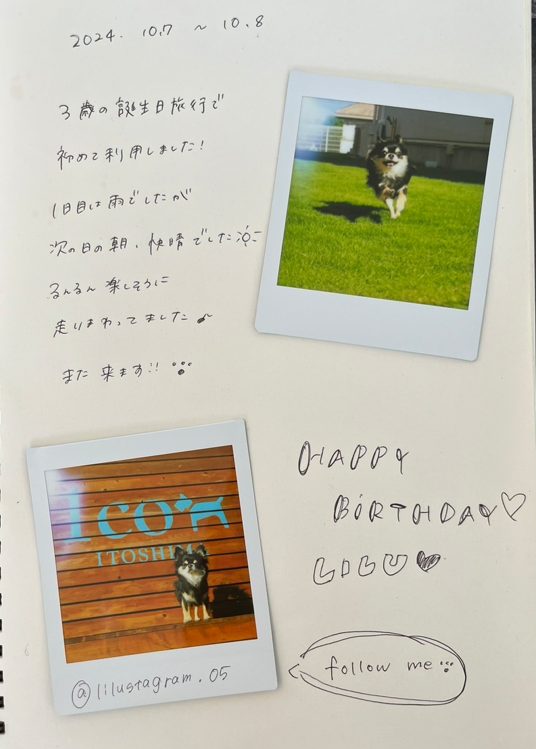 2024. 10.7 ~ 10.8
3歳の誕生日旅行で
初めて利用しました!
1日目は雨でしたが
次の日の朝、快晴でした
るんるん楽しそうに
走りまわってました♪
また来ます!!
HAPPY
BiRTHDAY♡
LiLU♥
ico
ITOSHIMA
@lilustagram.05
follow me